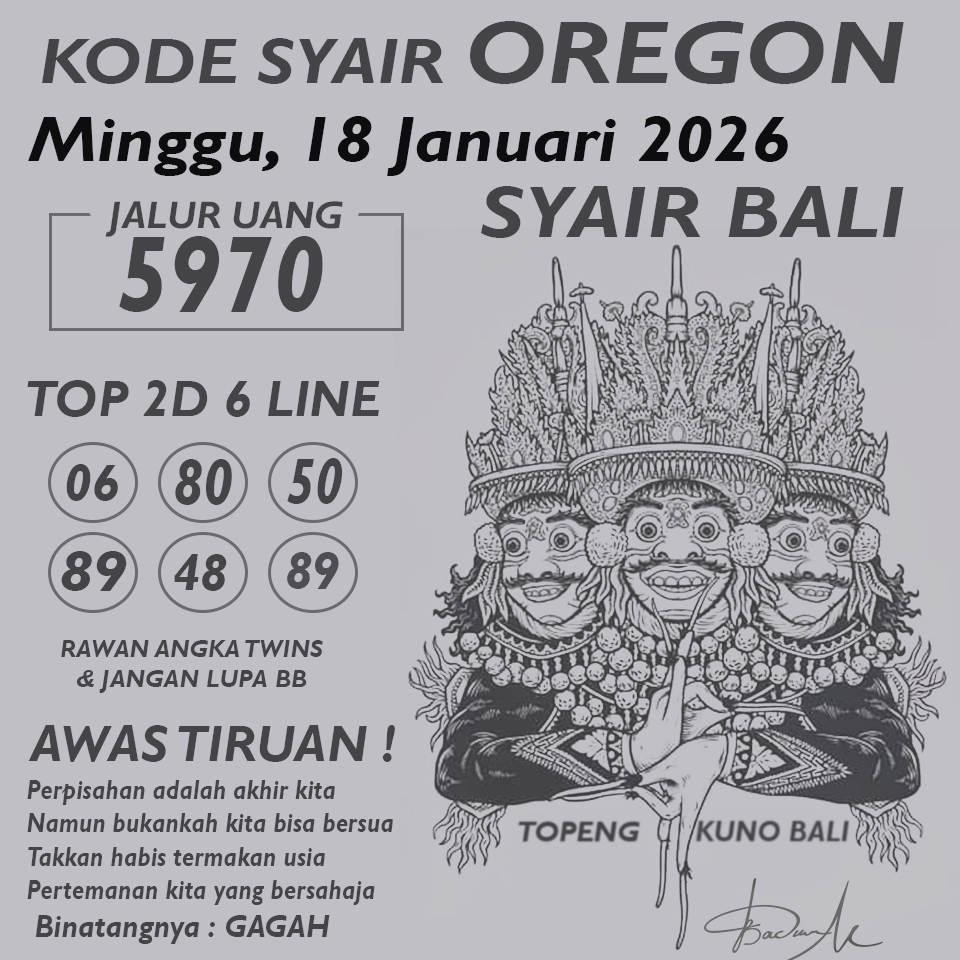 KODE SYAIR OREGON
Minggu, 18 Januari 2026
SYAIR BALI
JALUR UANG
5970
TOP 2D 6 LINE
06 80 50
89 48 89
RAWAN ANGKA TWINS
& JANGAN LUPA BB
AWAS TIRUAN !
Perpisahan adalah akhir kita
Namun bukankah kita bisa bersua
Takkan habis termakan usia
Pertemanan kita yang bersahaja
Binatangnya : GAGAH
TOPENG KUNO BALI